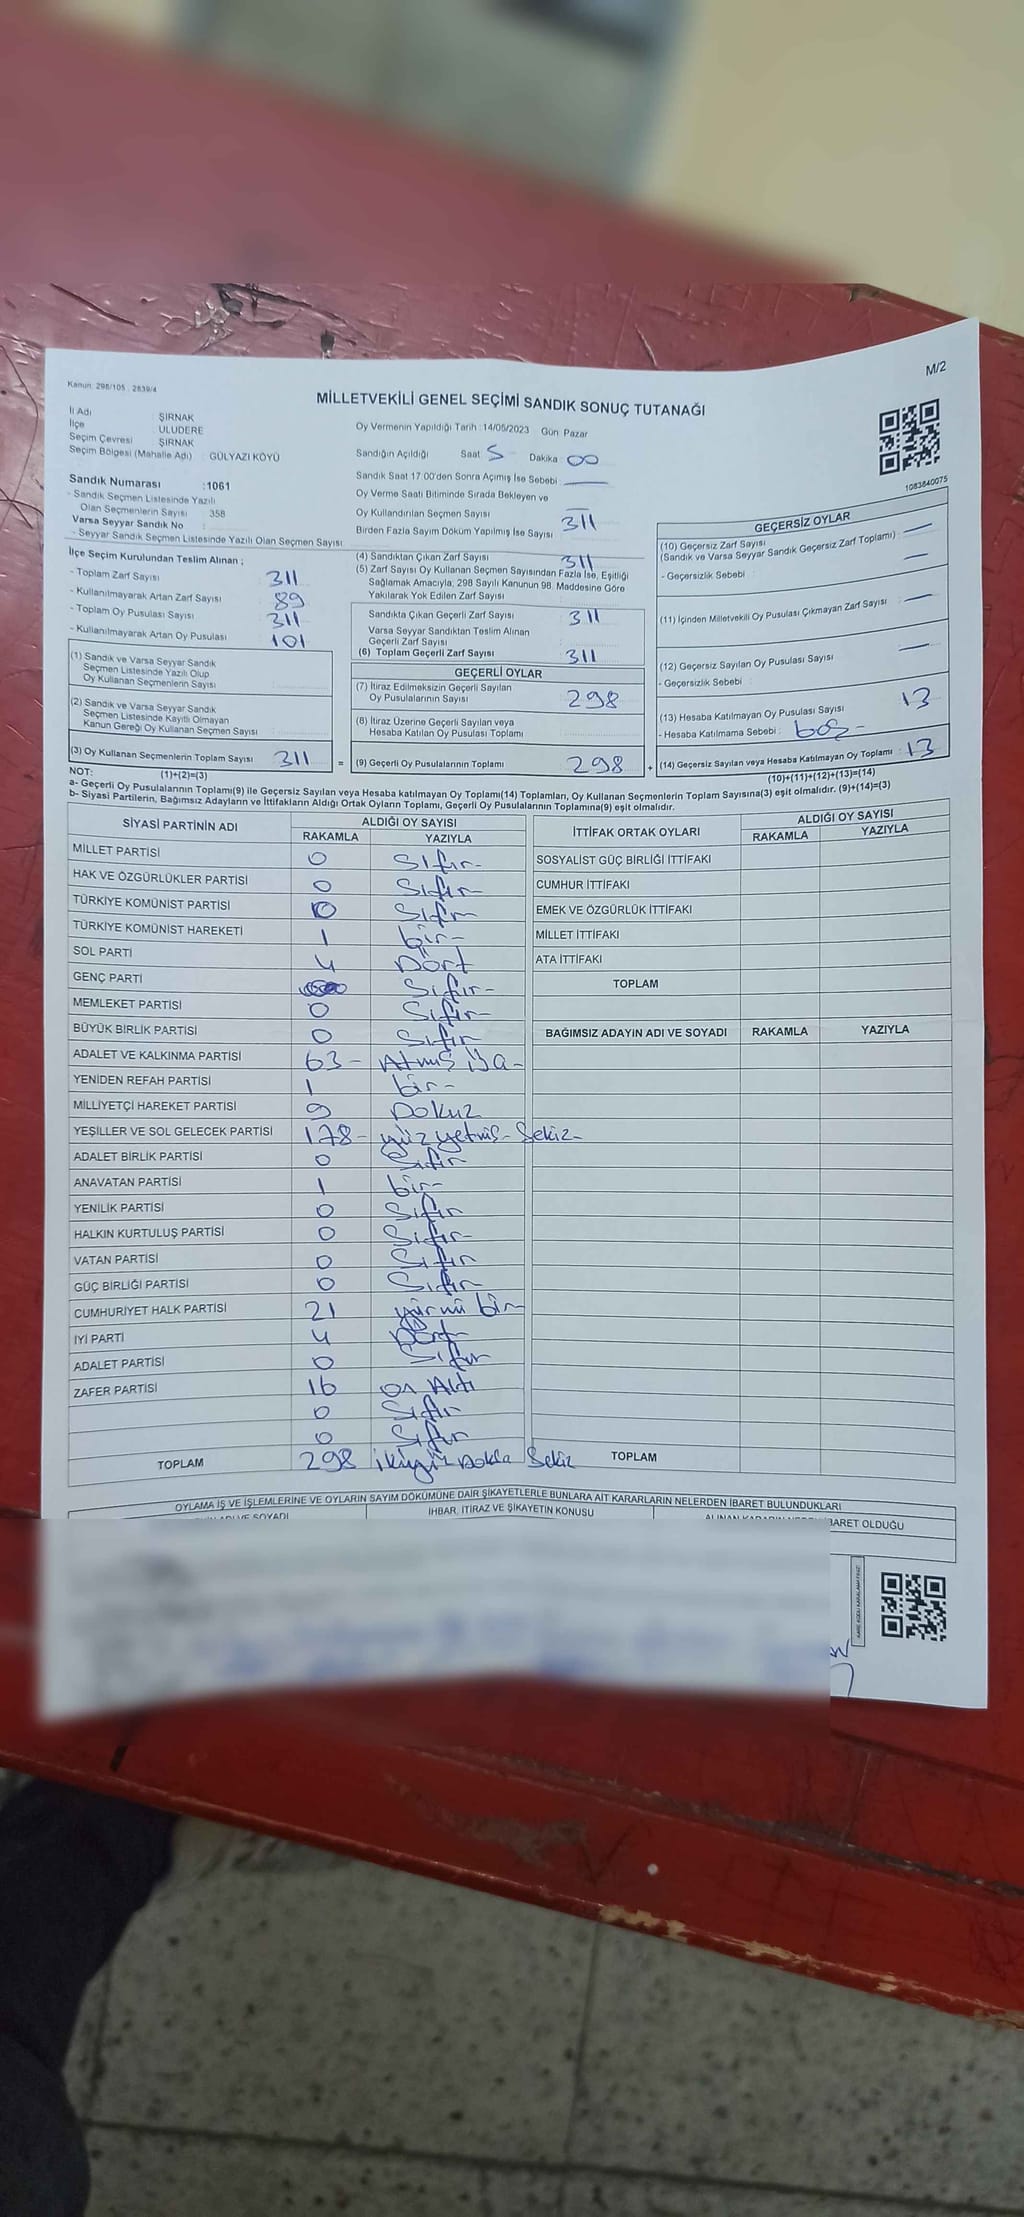 Kanun: 298/105 ; 2839/4
M/2
MİLLETVEKİLİ GENEL SEÇİMİ SANDIK SONUÇ TUTANAĞI
İl Adı ŞIRNAK
İlçe ULUDERE
Seçim Çevresi ŞIRNAK
Seçim Bölgesi (Mahalle Adı) : GÜLYAZI KÖYÜ
Sandık Numarası :1061
- Sandık Seçmen Listesinde Yazılı
Olan Seçmenlerin Sayısı : 358
Varsa Seyyar Sandık No
- Seyyar Sandık Seçmen Listesinde Yazılı Olan Seçmen Sayısı:
Oy Vermenin Yapıldığı Tarih : 14/05/2023 Gün Pazar
Sandığın Açıldığı Saat 5 Dakika 00
Sandık Saat 17:00'den Sonra Açılmış İse Sebebi
Oy Verme Saati Bitiminde Sırada Bekleyen ve
Oy Kullandırılan Seçmen Sayısı
Birden Fazla Sayım Döküm Yapılmış İse Sayısı 311
1083840075
İlçe Seçim Kurulundan Teslim Alınan ;
- Toplam Zarf Sayısı : 311
- Kullanılmayarak Artan Zarf Sayısı : 89
- Toplam Oy Pusulası Sayısı : 311
- Kullanılmayarak Artan Oy Pusulası : 101
(1) Sandık ve Varsa Seyyar Sandık
Seçmen Listesinde Yazılı Olup
Oy Kullanan Seçmenlerin Sayısı
(2) Sandık ve Varsa Seyyar Sandık
Seçmen Listesinde Kayıtlı Olmayan
Kanun Gereği Oy Kullanan Seçmen Sayısı
(3) Oy Kullanan Seçmenlerin Toplam Sayısı 311 =
(1)+(2)=(3)
(4) Sandıktan Çıkan Zarf Sayısı 311
(5) Zarf Sayısı Oy Kullanan Seçmen Sayısından Fazla İse, Eşitliği
Sağlamak Amacıyla, 298 Sayılı Kanunun 98. Maddesine Göre
Yakılarak Yok Edilen Zarf Sayısı
Sandıkta Çıkan Geçerli Zarf Sayısı : 311
Varsa Seyyar Sandıktan Teslim Alınan
Geçerli Zarf Sayısı
(6) Toplam Geçerli Zarf Sayısı : 311
GEÇERLİ OYLAR
(7) İtiraz Edilmeksizin Geçerli Sayılan
Oy Pusulalarının Sayısı 298
(8) İtiraz Üzerine Geçerli Sayılan veya
Hesaba Katılan Oy Pusulası Toplamı
(9) Geçerli Oy Pusulalarının Toplamı 298 +
GEÇERSİZ OYLAR
(10) Geçersiz Zarf Sayısı
(Sandık ve Varsa Seyyar Sandık Geçersiz Zarf Toplamı) :
- Geçersizlik Sebebi
(11) İçinden Milletvekili Oy Pusulası Çıkmayan Zarf Sayısı :
(12) Geçersiz Sayılan Oy Pusulası Sayısı
- Geçersizlik Sebebi
(13) Hesaba Katılmayan Oy Pusulası Sayısı 13
- Hesaba Katılmama Sebebi : boş -
(14) Geçersiz Sayılan veya Hesaba Katılmayan Oy Toplamı : 13
(10)+(11)+(12)+(13)=(14)
NOT:
a- Geçerli Oy Pusulalarının Toplamı(9) ile Geçersiz Sayılan veya Hesaba katılmayan Oy Toplamı(14) Toplamları, Oy Kullanan Seçmenlerin Toplam Sayısına(3) eşit olmalıdır. (9)+(14)=(3)
b- Siyasi Partilerin, Bağımsız Adayların ve İttifakların Aldığı Ortak Oyların Toplamı, Geçerli Oy Pusulalarının Toplamına(9) eşit olmalıdır.
SİYASİ PARTİNİN ADI ALDIĞI OY SAYISI
RAKAMLA YAZIYLA
MİLLET PARTİSİ 0 Sıfır-
HAK VE ÖZGÜRLÜKLER PARTİSİ 0 Sıfır-
TÜRKİYE KOMÜNİST PARTİSİ 0 Sıfır
TÜRKİYE KOMÜNİST HAREKETİ 1 bir-
SOL PARTİ 4 Dört
GENÇ PARTİ Sıfır-
MEMLEKET PARTİSİ 0 Sıfır-
BÜYÜK BİRLİK PARTİSİ 0 Sıfır
ADALET VE KALKINMA PARTİSİ 63 - Atmış
YENİDEN REFAH PARTİSİ 1 bir-
MİLLİYETÇİ HAREKET PARTİSİ 9 Dokuz
YEŞİLLER VE SOL GELECEK PARTİSİ 178 - yüz yetmiş - Sekiz -
ADALET BİRLİK PARTİSİ 0 Sıfır
ANAVATAN PARTİSİ 1 bir-
YENİLİK PARTİSİ 0 Sıfır
HALKIN KURTULUŞ PARTİSİ 0 Sıfır-
VATAN PARTİSİ 0 Sıfır
GÜÇ BİRLİĞİ PARTİSİ 0 Sıfır
CUMHURİYET HALK PARTİSİ 21 yürmü bir-
İYİ PARTİ 4 Dört
ADALET PARTİSİ 0 Sıfır
ZAFER PARTİSİ 16 on Altı
0 Sıfır
0 Sıfır
TOPLAM 298 ikiyüz Sekiz
İTTİFAK ORTAK OYLARI ALDIĞI OY SAYISI
RAKAMLA YAZIYLA
SOSYALİST GÜÇ BİRLİĞİ İTTİFAKI
CUMHUR İTTİFAKI
EMEK VE ÖZGÜRLÜK İTTİFAKI
MİLLET İTTİFAKI
ATA İTTİFAKI
TOPLAM
BAĞIMSIZ ADAYIN ADI VE SOYADI RAKAMLA YAZIYLA
TOPLAM
OYLAMA İŞ VE İŞLEMLERİNE VE OYLARIN SAYIM DÖKÜMÜNE DAİR ŞİKAYETLERLE BUNLARA AİT KARARLARIN NELERDEN İBARET BULUNDUKLARI
İHBAR, İTİRAZ VE ŞİKAYETİN KONUSU